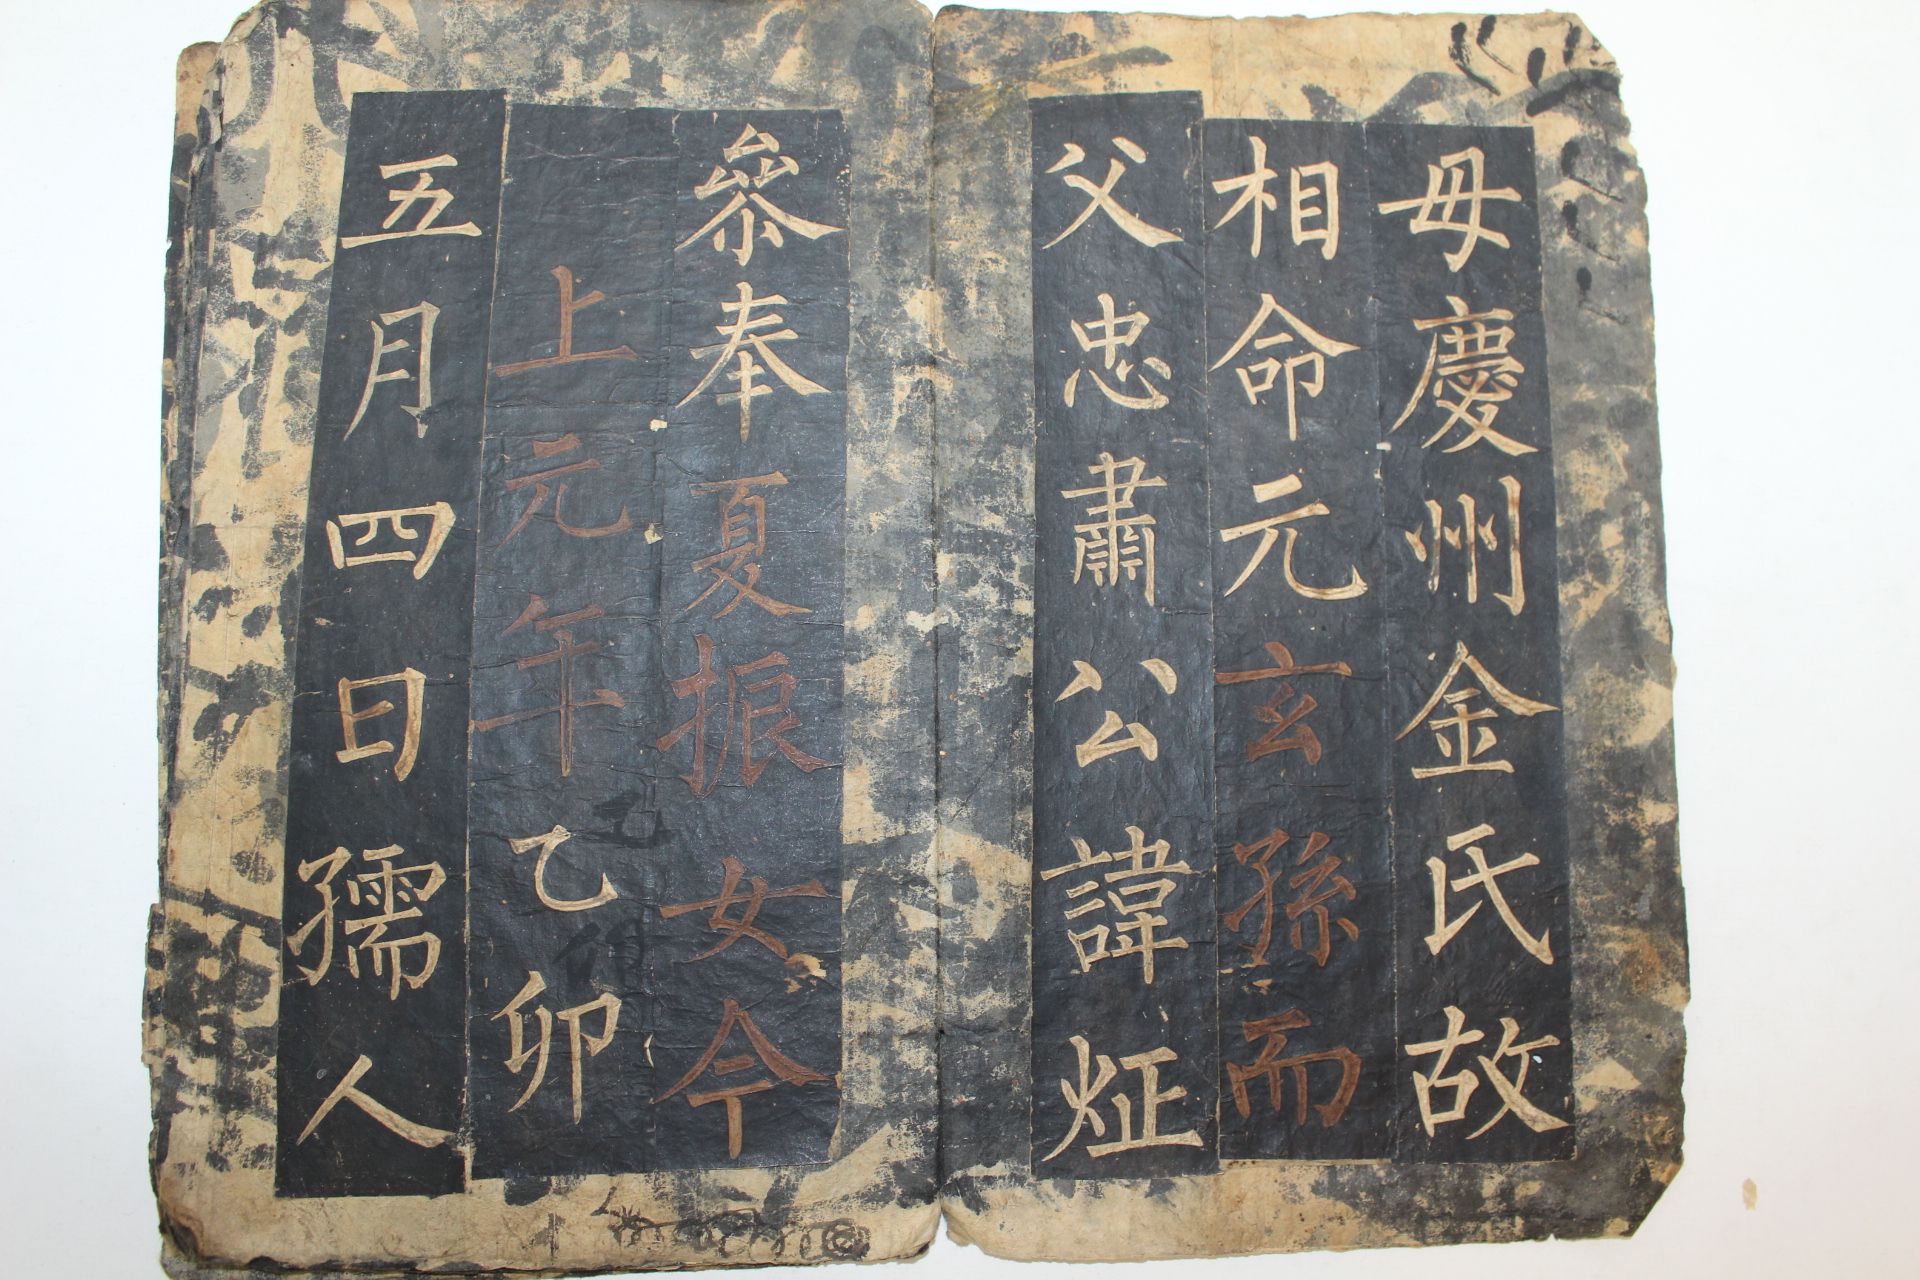 母慶州金氏故
相命元玄孫而
父忠肅公諱炡
參奉夏振女今
上元年乙卯
五月四日孺人